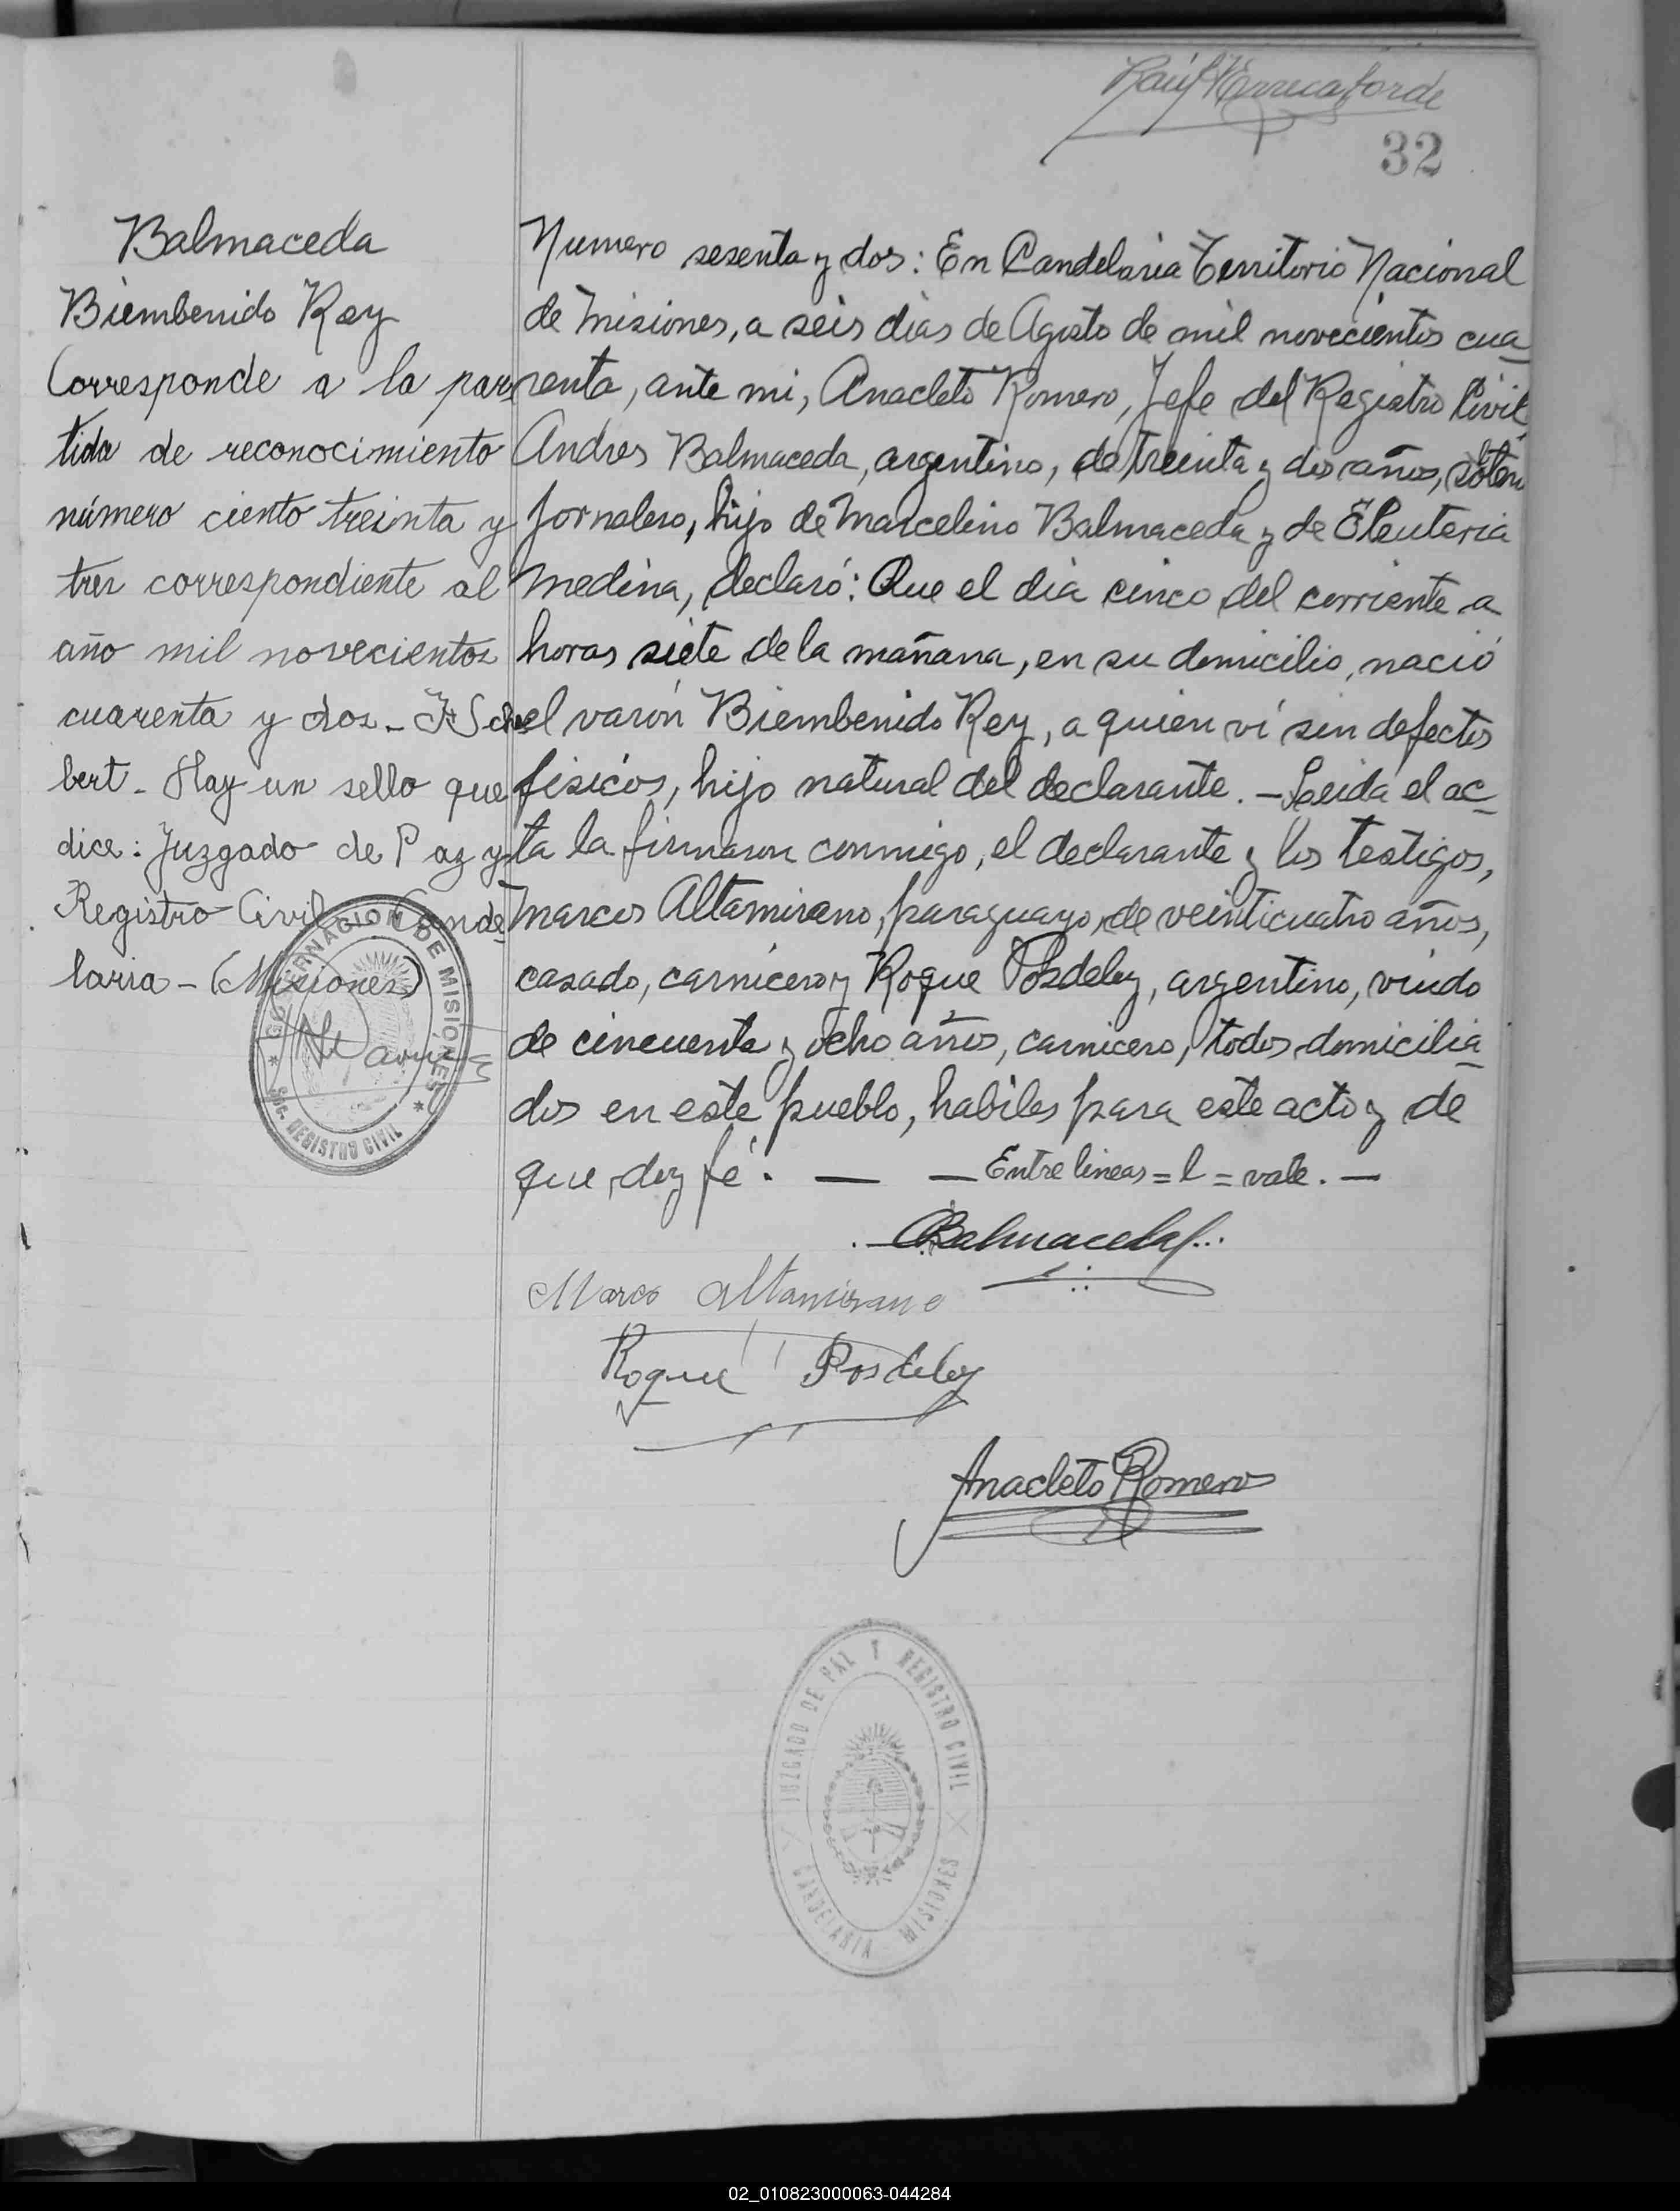 32
Balmaceda
Biembenido Rey
Corresponde a la par
tida de reconocimiento
número ciento treinta y
tres correspondiente al
año mil novecientos
cuarenta y dos -
bert - Hay un sello que
dice: Juzgado de Paz y
Registro Civil Cande
laria - (Misiones)
GOBERNACION DE MISIONES
REGISTRO CIVIL
Numero sesenta y dos: En Candelaria Territorio Nacional
de Misiones, a seis dias de Agosto de mil novecientos cua
renta, ante mi, Anacleto Romero, Jefe del Registro Civil
Andres Balmaceda, argentino, de treinta y dos años, soltero
Jornalero, hijo de Marcelino Balmaceda y de Eleuteria
Medina, declaró: Que el dia cinco del corriente a
horas siete de la mañana, en su domicilio, nació
el varón Biembenido Rey, a quien ví sin defectos
fisicos, hijo natural del declarante. - Leida el ac
ta la firmaron conmigo, el declarante y los testigos,
Marcos Altamirano, paraguayo, de veinticuatro años,
casado, carnicero y Roque Posdeley, argentino, viudo
de cincuenta y ocho años, carnicero, todos domicilia
dos en este pueblo, habiles para este acto y de
que doy fé. — — Entre lineas = l = vale. —
Balmaceda
Marco Altamirano
Roque Posdeley
Anacleto Romero
JUZGADO DE PAZ Y REGISTRO CIVIL
CANDELARIA MISIONES
02_010823000063-044284